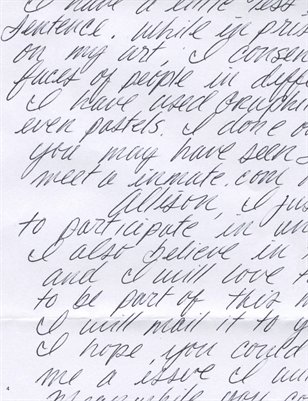 I have a little less
sentence. While in pris
on my art, I consen
faces of people in diffe
I have used Graphi
even pastels. I done o
you may have seen
meet a inmate.com
Allison, I jus
to participate in
I also believe in
and I will love t
to be part of this
I will mail it to y
I hope, you could
me a issue I wi
Meanwhile you co